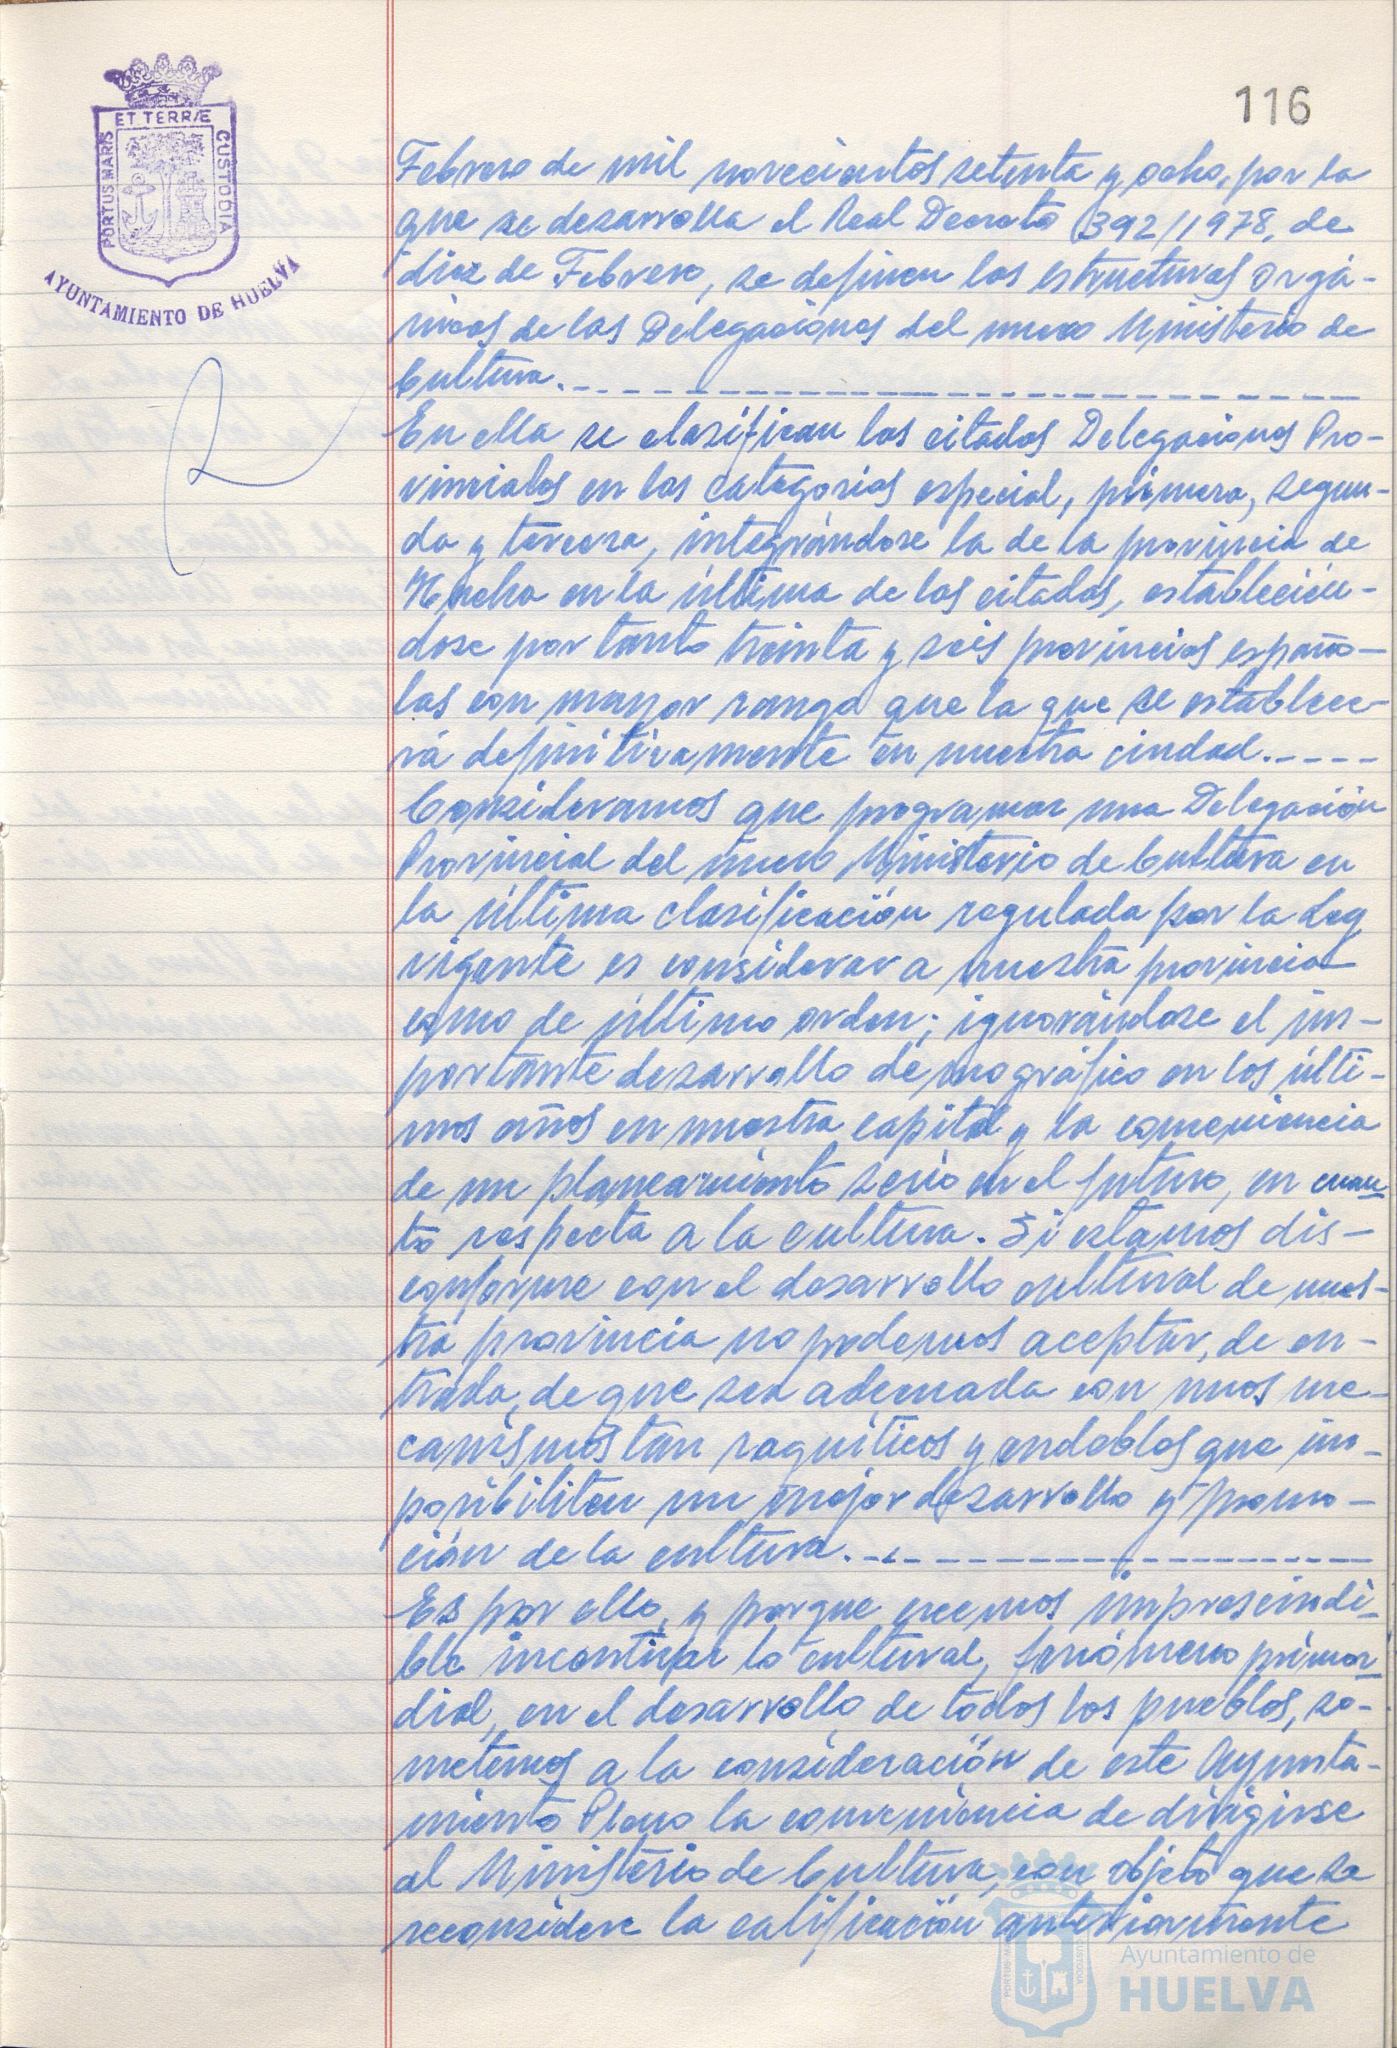 116
PORTUS MARIS ET TERRÆ CUSTODIA
AYUNTAMIENTO DE HUELVA
Febrero de mil novecientos setenta y ocho, por la
que se desarrolla el Real Decreto 392/1978, de
diez de Febrero, se definen las estructuras orgá-
nicas de las Delegaciones del nuevo Ministerio de
Cultura.
En ella se clasifican las citadas Delegaciones Pro-
vinciales en las categorías especial, primera, segun-
da y tercera, integrándose la de la provincia de
Huelva en la última de las citadas, establecién-
dose por tanto treinta y seis provincias españo-
las con mayor rango que la que se establece-
rá definitivamente en nuestra ciudad.
Consideramos que programar una Delegación
Provincial del nuevo Ministerio de Cultura en
la última clasificación regulada por la Ley
vigente es considerar a nuestra provincia
como de último orden; ignorándose el im-
portante desarrollo demográfico en los últi-
mos años en nuestra capital y la conveniencia
de un planeamiento serio en el futuro, en cuan-
to respecta a la cultura. Si estamos dis-
conforme con el desarrollo cultural de nues-
tra provincia no podemos aceptar, de en-
trada, de que sea adecuada con unos me-
canismos tan raquíticos y endebles que im-
posibiliten un mejor desarrollo y promo-
ción de la cultura.
Es por ello, y porque creemos imprescindi-
ble incentivar lo cultural, fenómeno primor-
dial, en el desarrollo de todos los pueblos, so-
metemos a la consideración de este Ayunta-
miento Pleno la conveniencia de dirigirse
al Ministerio de Cultura, con objeto que se
reconsidere la calificación anteriormente
Ayuntamiento de
HUELVA